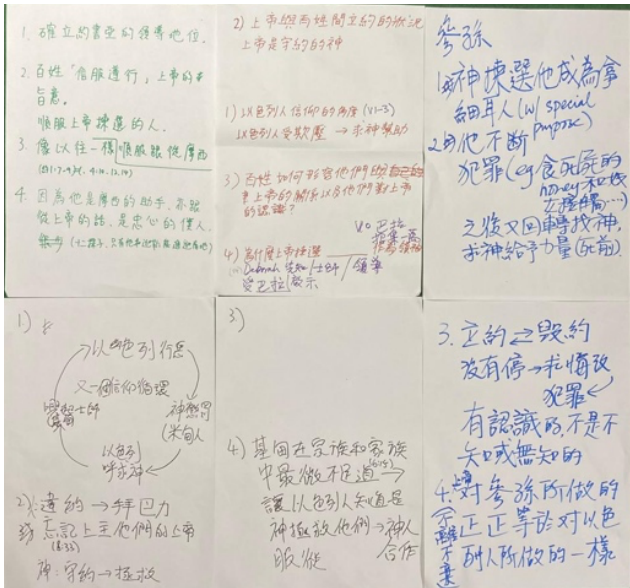 1. 確立約書亞的領導地位.
2. 百姓「信服遵行」上帝的
旨意.
順服上帝揀選的人.
3. 像以往一樣順服跟從摩西
4. 因為他是摩西的助手, 亦跟
從上帝的話, 是忠心的僕人.
2) 上帝與百姓間立約的
上帝是守約的神
1) 以色列人信仰的角度 (V1-3)
以色列人受欺壓 → 求神幫助
3) 百姓如何形容他們與
上帝的關係以及他們對上帝
的認識?
4) 為什麼上帝揀選
Deborah 先知/士師/領導
受巴拉
V.0 巴拉
參孫
1. 神揀選他成為拿
細耳人 (w/ special
purpose)
2. 他不斷
犯罪 (eg 食死屍的
honey 和
之後又回轉找神,
求神給予力量 (死前).
1)
以色列行惡
又一個信仰循環
神懲罰
(米甸人
以色列
呼求神
士師
2) 違約 → 拜巴力
忘記上主他們的上帝
(8:33)
神: 守約 → 拯救
3)
4) 基甸在宗族和家族
中最微不足道 (6:15) →
讓以色列人知道是
神拯救他們 → 神人
服從 合作
3. 立約 ⇄ 毀約
沒有停 → 求悔改
犯罪
有認識的, 不是不
知或無知的
4. 上帝對參孫所做的
正正等於對以色
列人所做的一樣
不離不棄